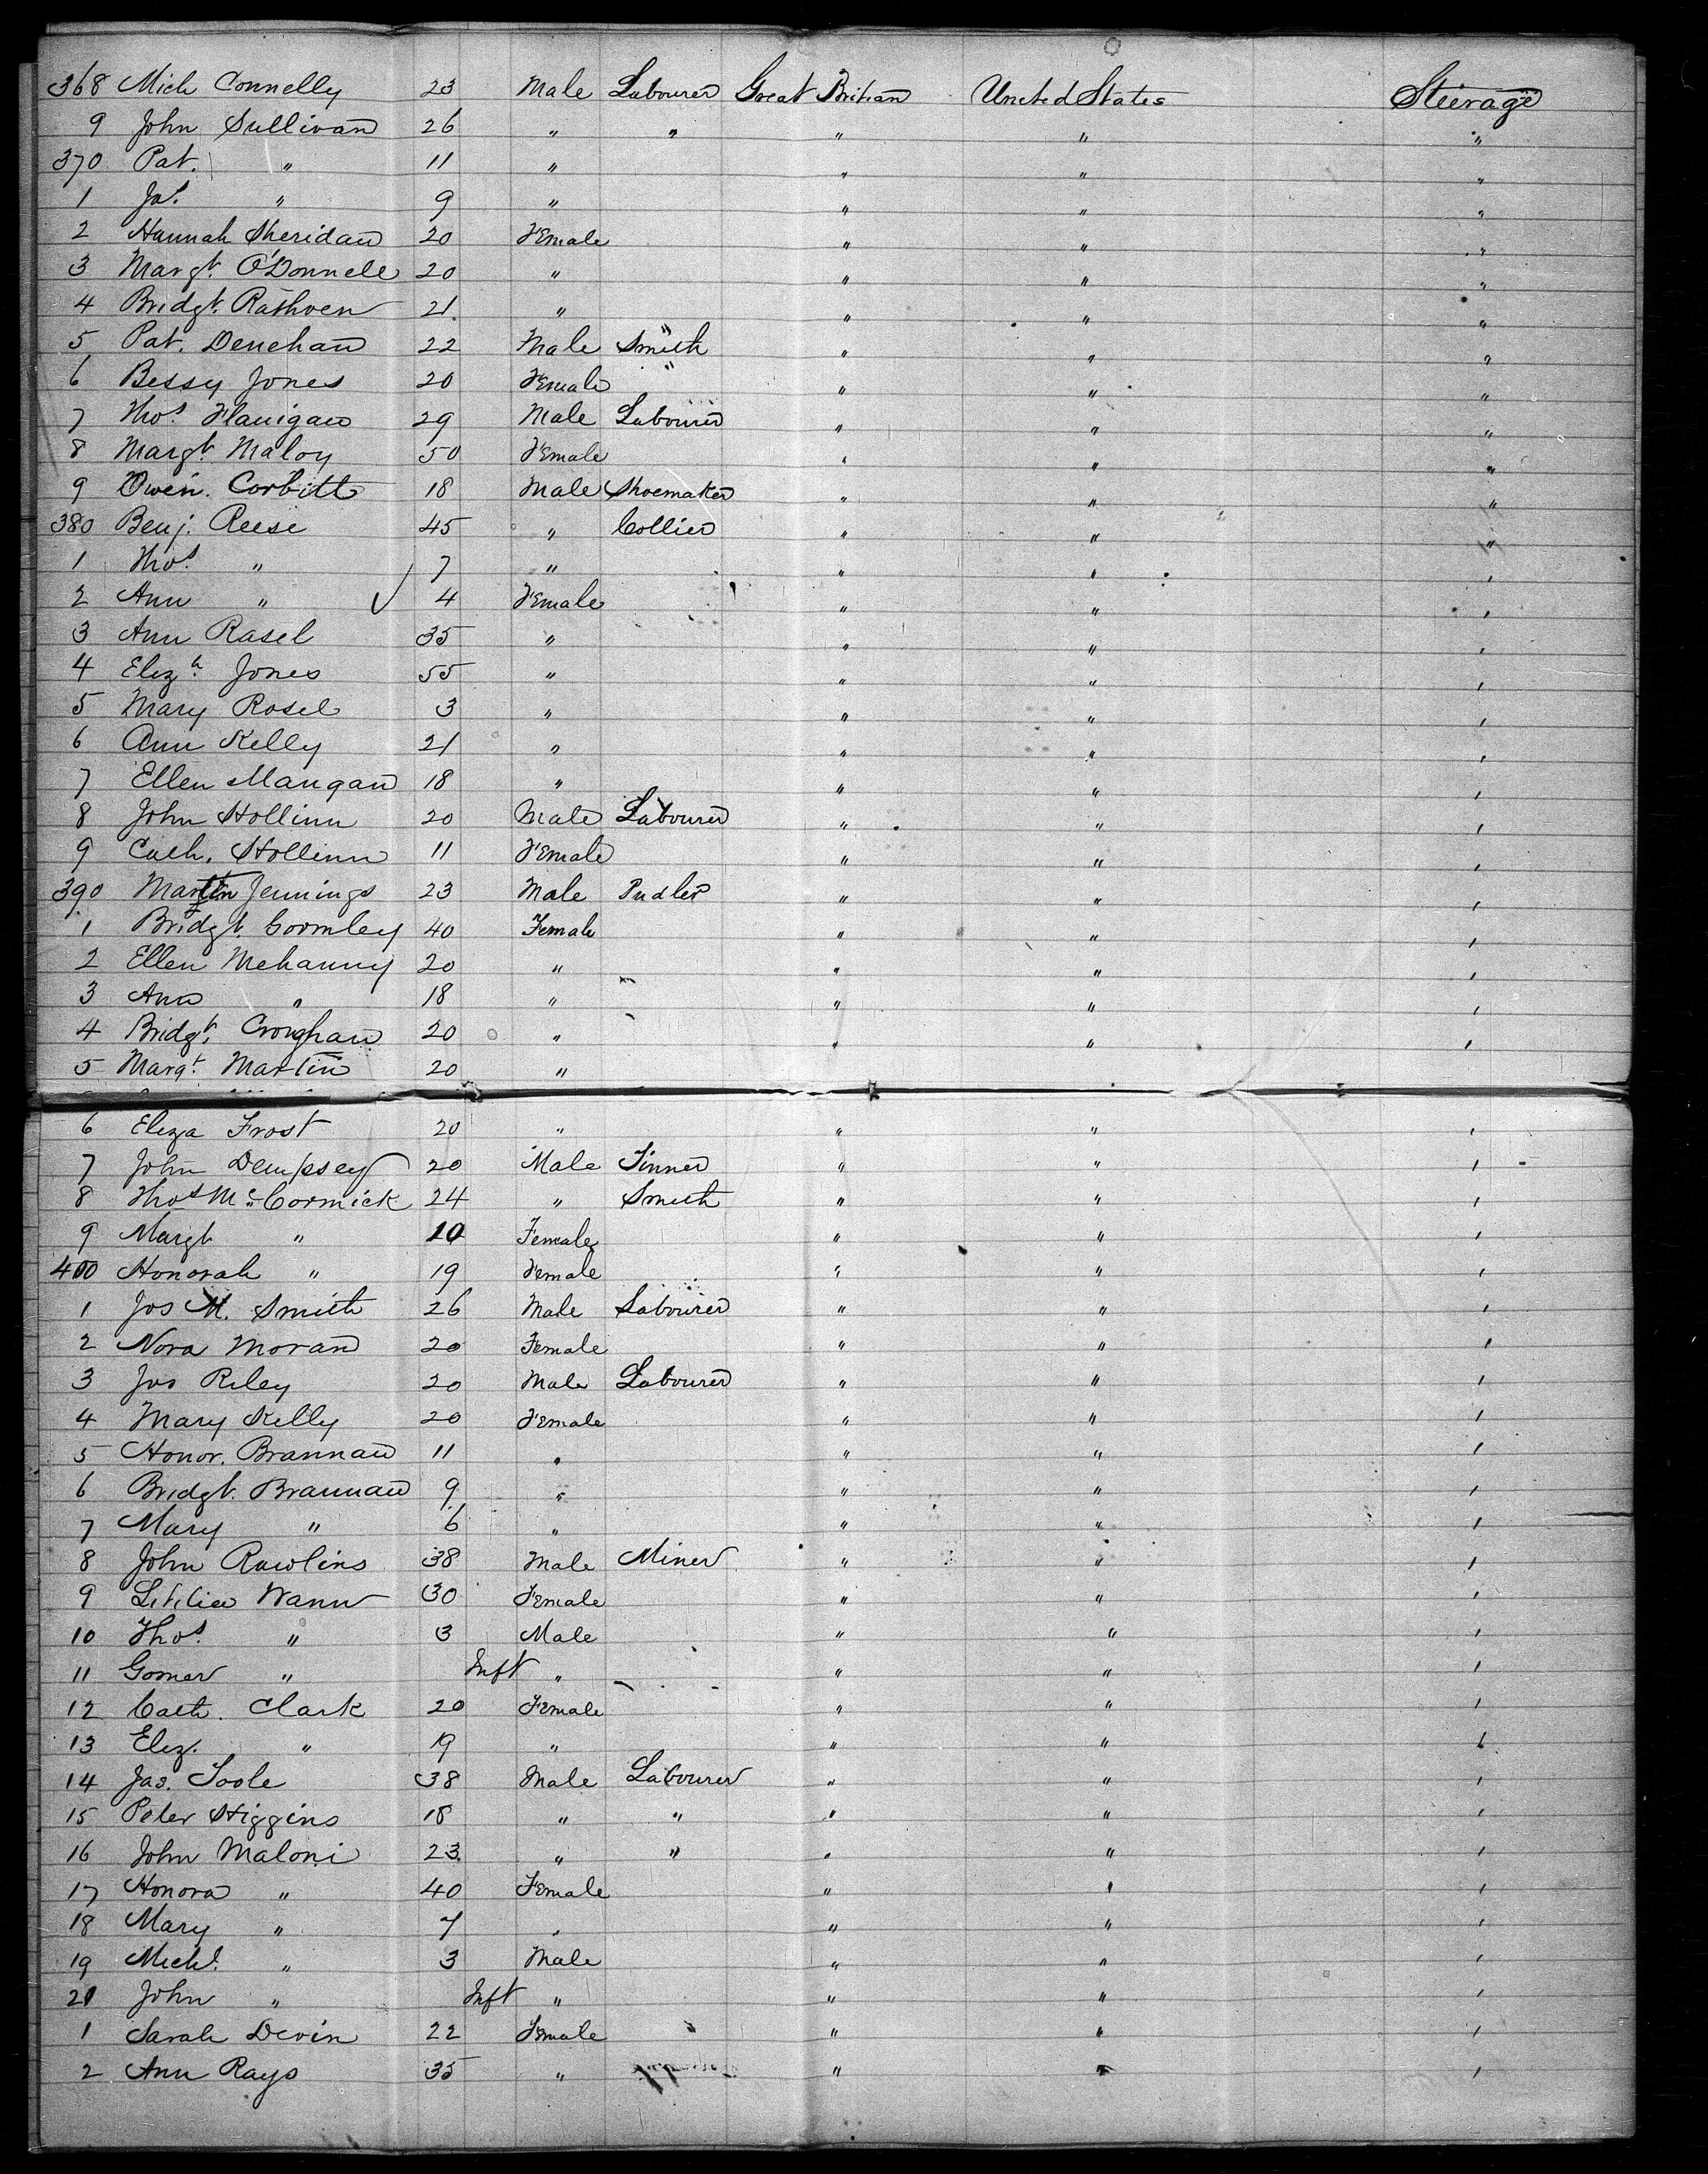 368 Mich Connelly 23 Male Labourer Great Britian United States Steerage
9 John Sullivan 26 " " " " "
370 Pat. " 11 " " " "
1 Jas. " 9 " " " "
2 Hannah Sheridan 20 Female " " "
3 Margt. O'Donnell 20 " " " "
4 Bridgt. Rathven 21. " " " "
5 Pat. Denehan 22 Male Smith " " "
6 Bessy Jones 20 Female " " " "
7 Thos. Flanigan 29 Male Labourer " " "
8 Margt. Maloy 50 Female " " "
9 Owen. Corbitt 18 Male Shoemaker " " "
380 Benj. Reese 45 " Collier " " "
1 Thos. " 7 " " " "
2 Ann " ✓ 4 Female " " "
3 Ann Rasel 35 " " " "
4 Elizh. Jones 55 " " " "
5 Mary Rosel 3 " " " "
6 Ann Kelly 21 " " " "
7 Ellen Mangan 18 " " " "
8 John Hollinn 20 Male Labourer " " "
9 Cath. Hollinn 11 Female " " "
390 Martin Jennings 23 Male Pudler " " "
1 Bridgt. Gormley 40 Female " " "
2 Ellen Mehanny 20 " " " "
3 Ann " 18 " " " "
4 Bridgt. Croughan 20 " " " "
5 Margt. Martin 20 "
6 Eliza Frost 20 " " " "
7 John Dempsey 20 Male Tinner " " "
8 Thos Mc Cormick 24 " Smith " " "
9 Margt " 10 Female " " "
400 Honorah " 19 Female " " "
1 Jos M. Smith 26 Male Labourer " " "
2 Nora Moran 20 Female " " "
3 Jas Riley 20 Male Labourer " " "
4 Mary Kelly 20 Female " " "
5 Honor. Brannan 11 " " " "
6 Bridgt. Brannan 9 " " " "
7 Mary " 6 " " " "
8 John Rawlins 38 Male Miner " " "
9 Letitia Wann 30 Female " " "
10 Thos. " 3 Male " " "
11 Gomer " Inft " " " "
12 Cath. Clark 20 Female " " "
13 Eliz. " 19 " " " "
14 Jas. Toole 38 Male Labourer " " "
15 Peter Higgins 18 " " " " "
16 John Maloni 23. " " " " "
17 Honora " 40 Female " " "
18 Mary " 7 " " " "
19 Michl. " 3 Male " " "
20 John " Inft " " " "
1 Sarah Devin 22 Female " " "
2 Ann Rays 35 " " " "